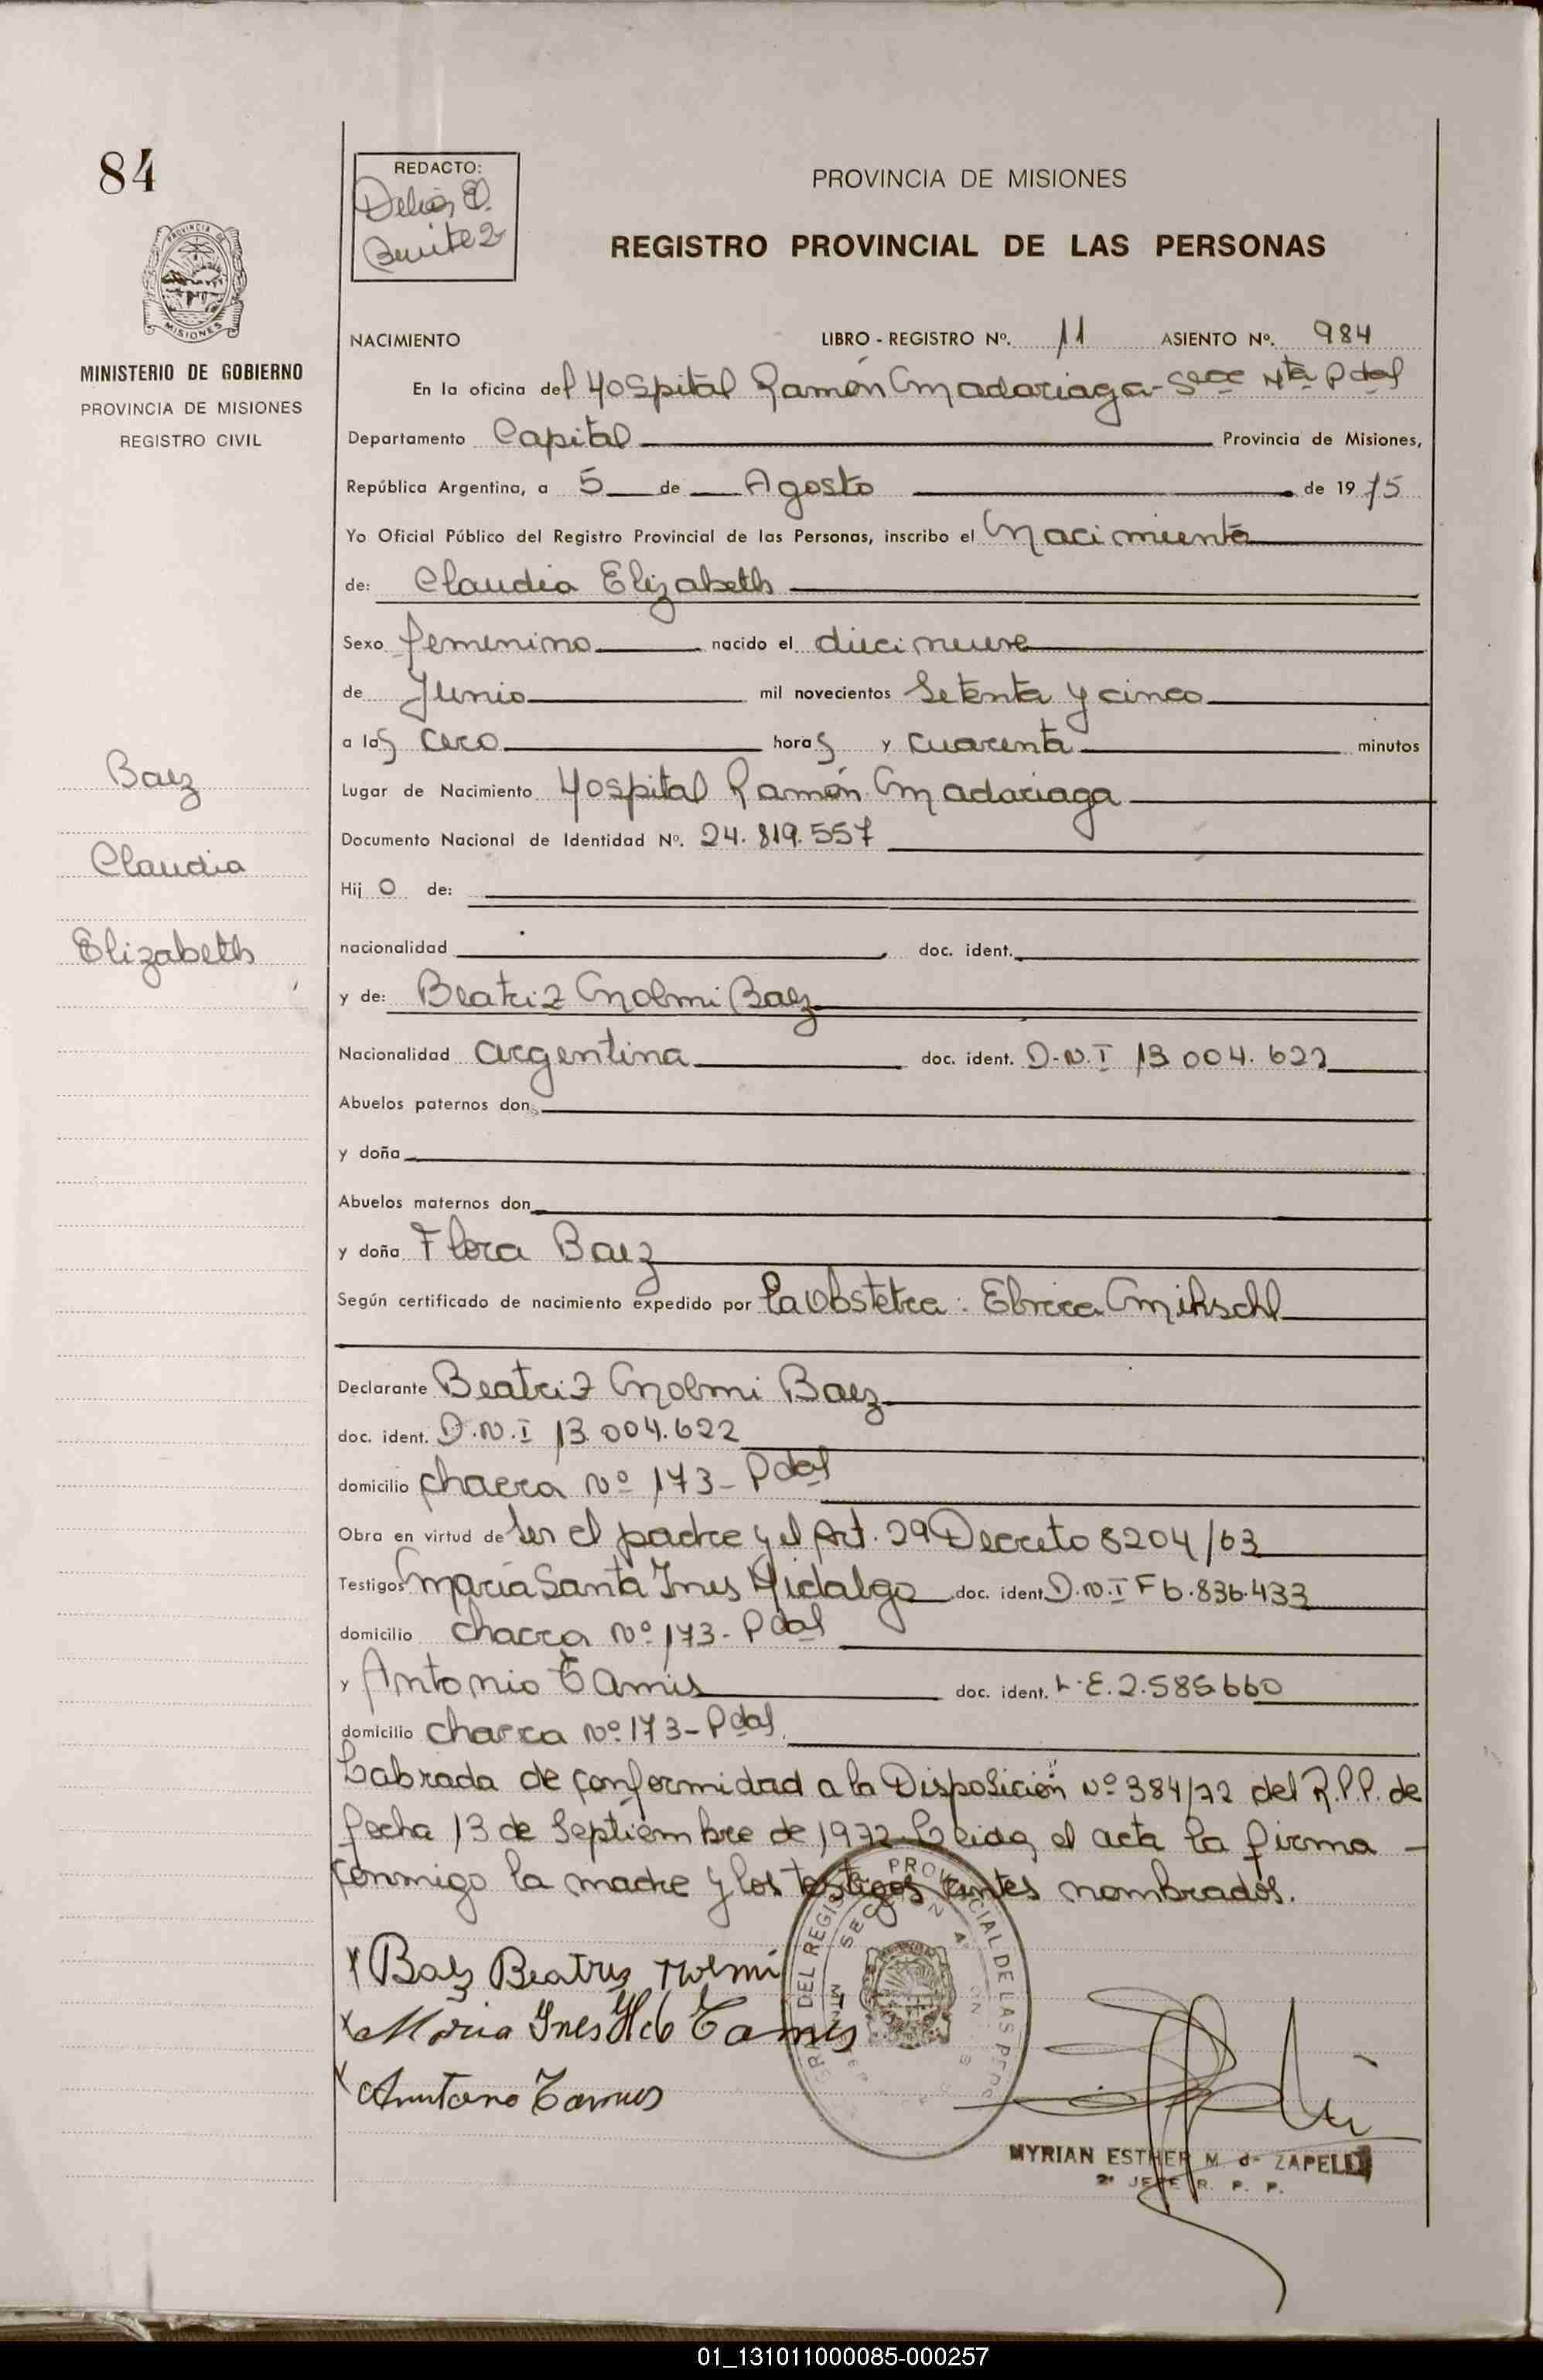 84
PROVINCIA DE
MISIONES
MINISTERIO DE GOBIERNO
PROVINCIA DE MISIONES
REGISTRO CIVIL
Baez
Claudia
Elizabeth
REDACTO:
Delia E.
Benitez
PROVINCIA DE MISIONES
REGISTRO PROVINCIAL DE LAS PERSONAS
NACIMIENTO LIBRO - REGISTRO Nº. 11 ASIENTO Nº. 984
En la oficina del Hospital Ramón Madariaga - Secc 4ta Pdas
Departamento Capital Provincia de Misiones,
República Argentina, a 5 de Agosto de 1975
Yo Oficial Público del Registro Provincial de las Personas, inscribo el Nacimiento
de: Claudia Elizabeth
Sexo femenino nacido el diecinueve
de Junio mil novecientos Setenta y cinco
a las cero horas y cuarenta minutos
Lugar de Nacimiento Hospital Ramón Madariaga
Documento Nacional de Identidad Nº. 24.819.557
Hij o de:
nacionalidad doc. ident.
y de: Beatriz Noemi Baez
Nacionalidad argentina doc. ident. D.N.I 13.004.622
Abuelos paternos don
y doña
Abuelos maternos don
y doña Flora Baez
Según certificado de nacimiento expedido por la Obstetra: Mihschl
Declarante Beatriz Noemi Baez
doc. ident. D.N.I 13.004.622
domicilio chacra Nº 173 - Pdas
Obra en virtud de ser el padre y el Art. 29 Decreto 8204/63
Testigos Maria Santa Ines Hidalgo doc. ident. D.N.I F 6.836.433
domicilio chacra Nº 173 - Pdas
y Antonio Tamis doc. ident. L.E. 2.585.660
domicilio chacra Nº 173 - Pdas
Labrada de conformidad a la Disposición Nº 384/72 del R.P.P. de
fecha 13 de Septiembre de 1972 Leida el acta la firma -
conmigo la madre y los testigos antes nombrados.
Baez Beatriz Noemi
Maria Ines H de Tamis
Antonio Tamis
DEL REGISTRO PROVINCIAL DE LAS PERS
SECCION 4ª
MYRIAN ESTHER M. de ZAPELLI
2º JEFE R. P. P.
01_131011000085-000257